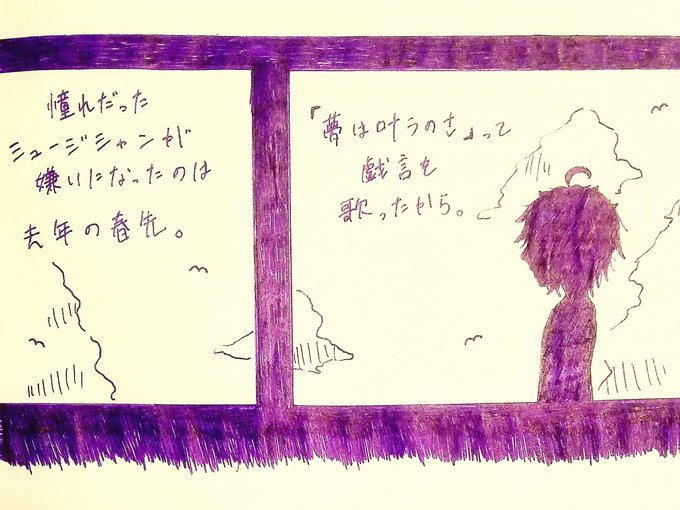 憧れだった
ミュージシャンが
嫌いになったのは
去年の春先。
『夢は叶うのさ』って
戯言を
歌ったから。